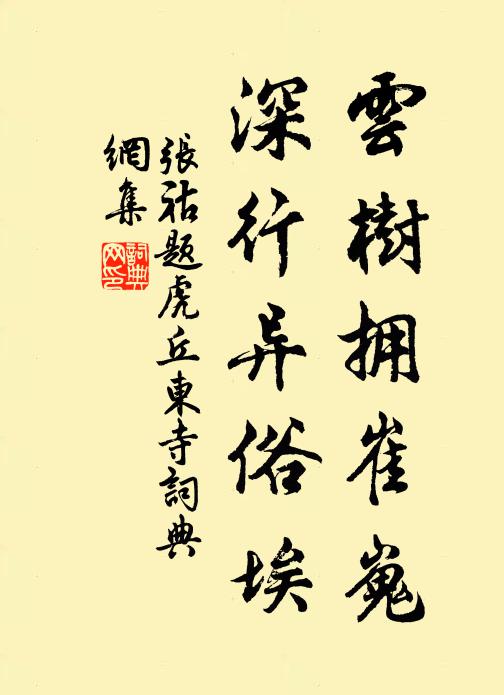 雲樹拥崔嵬
深行异俗埃
張祜題虎丘東寺詞典
網集
詞典
网印